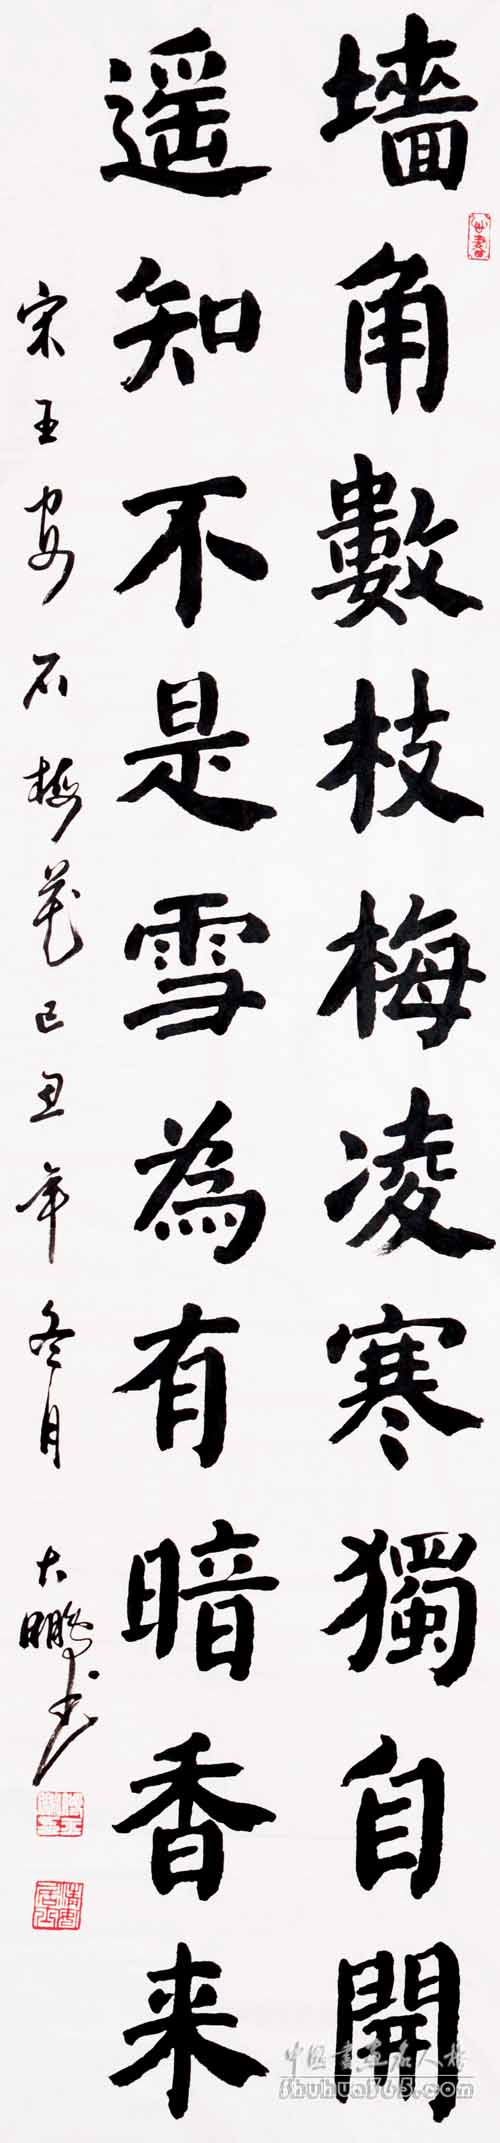 墻角數枝梅凌寒獨自開
遥知不是雪為有暗香来
宋王安石梅花己丑年冬月
大鵬书
中国书画名人榜
shuhua365.com